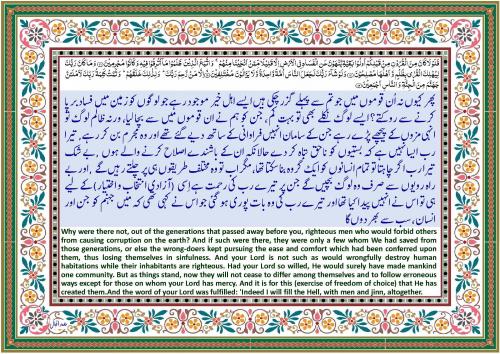 فَلَوْلَا كَانَ مِنَ الْقُرُونِ مِنْ قَبْلِكُمْ أُولُو بَقِيَّةٍ يَنْهَوْنَ عَنِ الْفَسَادِ فِي الْأَرْضِ إِلَّا قَلِيلًا مِمَّنْ أَنْجَيْنَا مِنْهُمْ ۗ وَاتَّبَعَ الَّذِينَ ظَلَمُوا مَا أُتْرِفُوا فِيهِ وَكَانُوا مُجْرِمِينَ وَمَا كَانَ رَبُّكَ
لِيُهْلِكَ الْقُرَىٰ بِظُلْمٍ وَأَهْلُهَا مُصْلِحُونَ وَلَوْ شَاءَ رَبُّكَ لَجَعَلَ النَّاسَ أُمَّةً وَاحِدَةً ۖ وَلَا يَزَالُونَ مُخْتَلِفِينَ إِلَّا مَنْ رَحِمَ رَبُّكَ ۚ وَلِذَٰلِكَ خَلَقَهُمْ ۗ وَتَمَّتْ كَلِمَةُ رَبِّكَ لَأَمْلَأَنَّ
جَهَنَّمَ مِنَ الْجِنَّةِ وَالنَّاسِ أَجْمَعِينَ
پھر کیوں نہ اُن قوموں میں جو تم سے پہلے گزر چکی ہیں ایسے اہل خیر موجود رہے جو لوگوں کو زمین میں فساد برپا
کرنے سے روکتے؟ ایسے لوگ نکلے بھی تو بہت کم، جن کو ہم نے ان قوموں میں سے بچا لیا، ورنہ ظالم لوگ تو
انہی مزوں کے پیچھے پڑے رہے جن کے سامان انہیں فراوانی کے ساتھ دیے گئے تھے اور وہ مجرم بن کر رہے، تیرا
رب ایسا نہیں ہے کہ بستیوں کو ناحق تباہ کر دے حالانکہ ان کے باشندے اصلاح کرنے والے ہوں، بے شک
تیرا رب اگر چاہتا تو تمام انسانوں کو ایک گروہ بنا سکتا تھا، مگر اب تو وہ مختلف طریقوں ہی پر چلتے رہیں گے، اور بے
راہ رویوں سے صرف وہ لوگ بچیں گے جن پر تیرے رب کی رحمت ہے اِسی (آزادی انتخاب و اختیار) کے لیے
ہی تو اس نے انہیں پیدا کیا تھا اور تیرے رب کی وہ بات پوری ہو گئی جو اس نے کہی تھی کہ میں جہنم کو جن اور
انسان، سب سے بھر دوں گا
Why were there not, out of the generations that passed away before you, righteous men who would forbid others
from causing corruption on the earth? And if such were there, they were only a few whom We had saved from
those generations, or else the wrong-doers kept pursuing the ease and comfort which had been conferred upon
them, thus losing themselves in sinfulness. And your Lord is not such as would wrongfully destroy human
habitations while their inhabitants are righteous. Had your Lord so willed, He would surely have made mankind
one community. But as things stand, now they will not cease to differ among themselves and to follow erroneous
ways except for those on whom your Lord has mercy. And it is for this (exercise of freedom of choice) that He has
created them.And the word of your Lord was fulfilled: 'Indeed I will fill the Hell, with men and jinn, altogether.